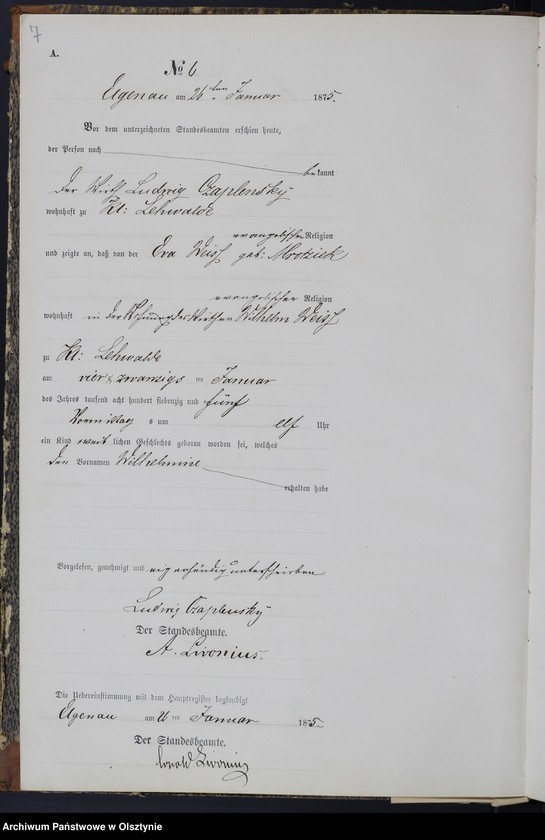 7
A.
№ 6
Elgenau am 26ten Januar 1875.
Vor dem unterzeichneten Standesbeamten erschien heute,
der Person nach
bekannt
der Wirth Ludwig Czaplensky
wohnhaft zu Kl: Lehwalde
evangelischer Religion
und zeigte an, daß von der Eva Weiss geb: Mroziek
evangelischer Religion
wohnhaft in der Wohnung des Wirthen Wilhelm Weiss
zu Kl: Lehwalde
am vier & zwanzigs ten Januar
des Jahres tausend acht hundert siebenzig und fünf
Vormittag s um elf Uhr
ein Kind weib lichen Geschlechts geboren worden sei, welches
den Vornamen Wilhelmine
erhalten habe
Vorgelesen, genehmigt und eigenhändig unterschrieben
Ludwig Czaplensky
Der Standesbeamte.
A. Livonius.
Die Uebereinstimmung mit dem Hauptregister beglaubigt
Elgenau am 26 ten Januar 1875.
Der Standesbeamte.
Livonius
Archiwum Państwowe w Olsztynie